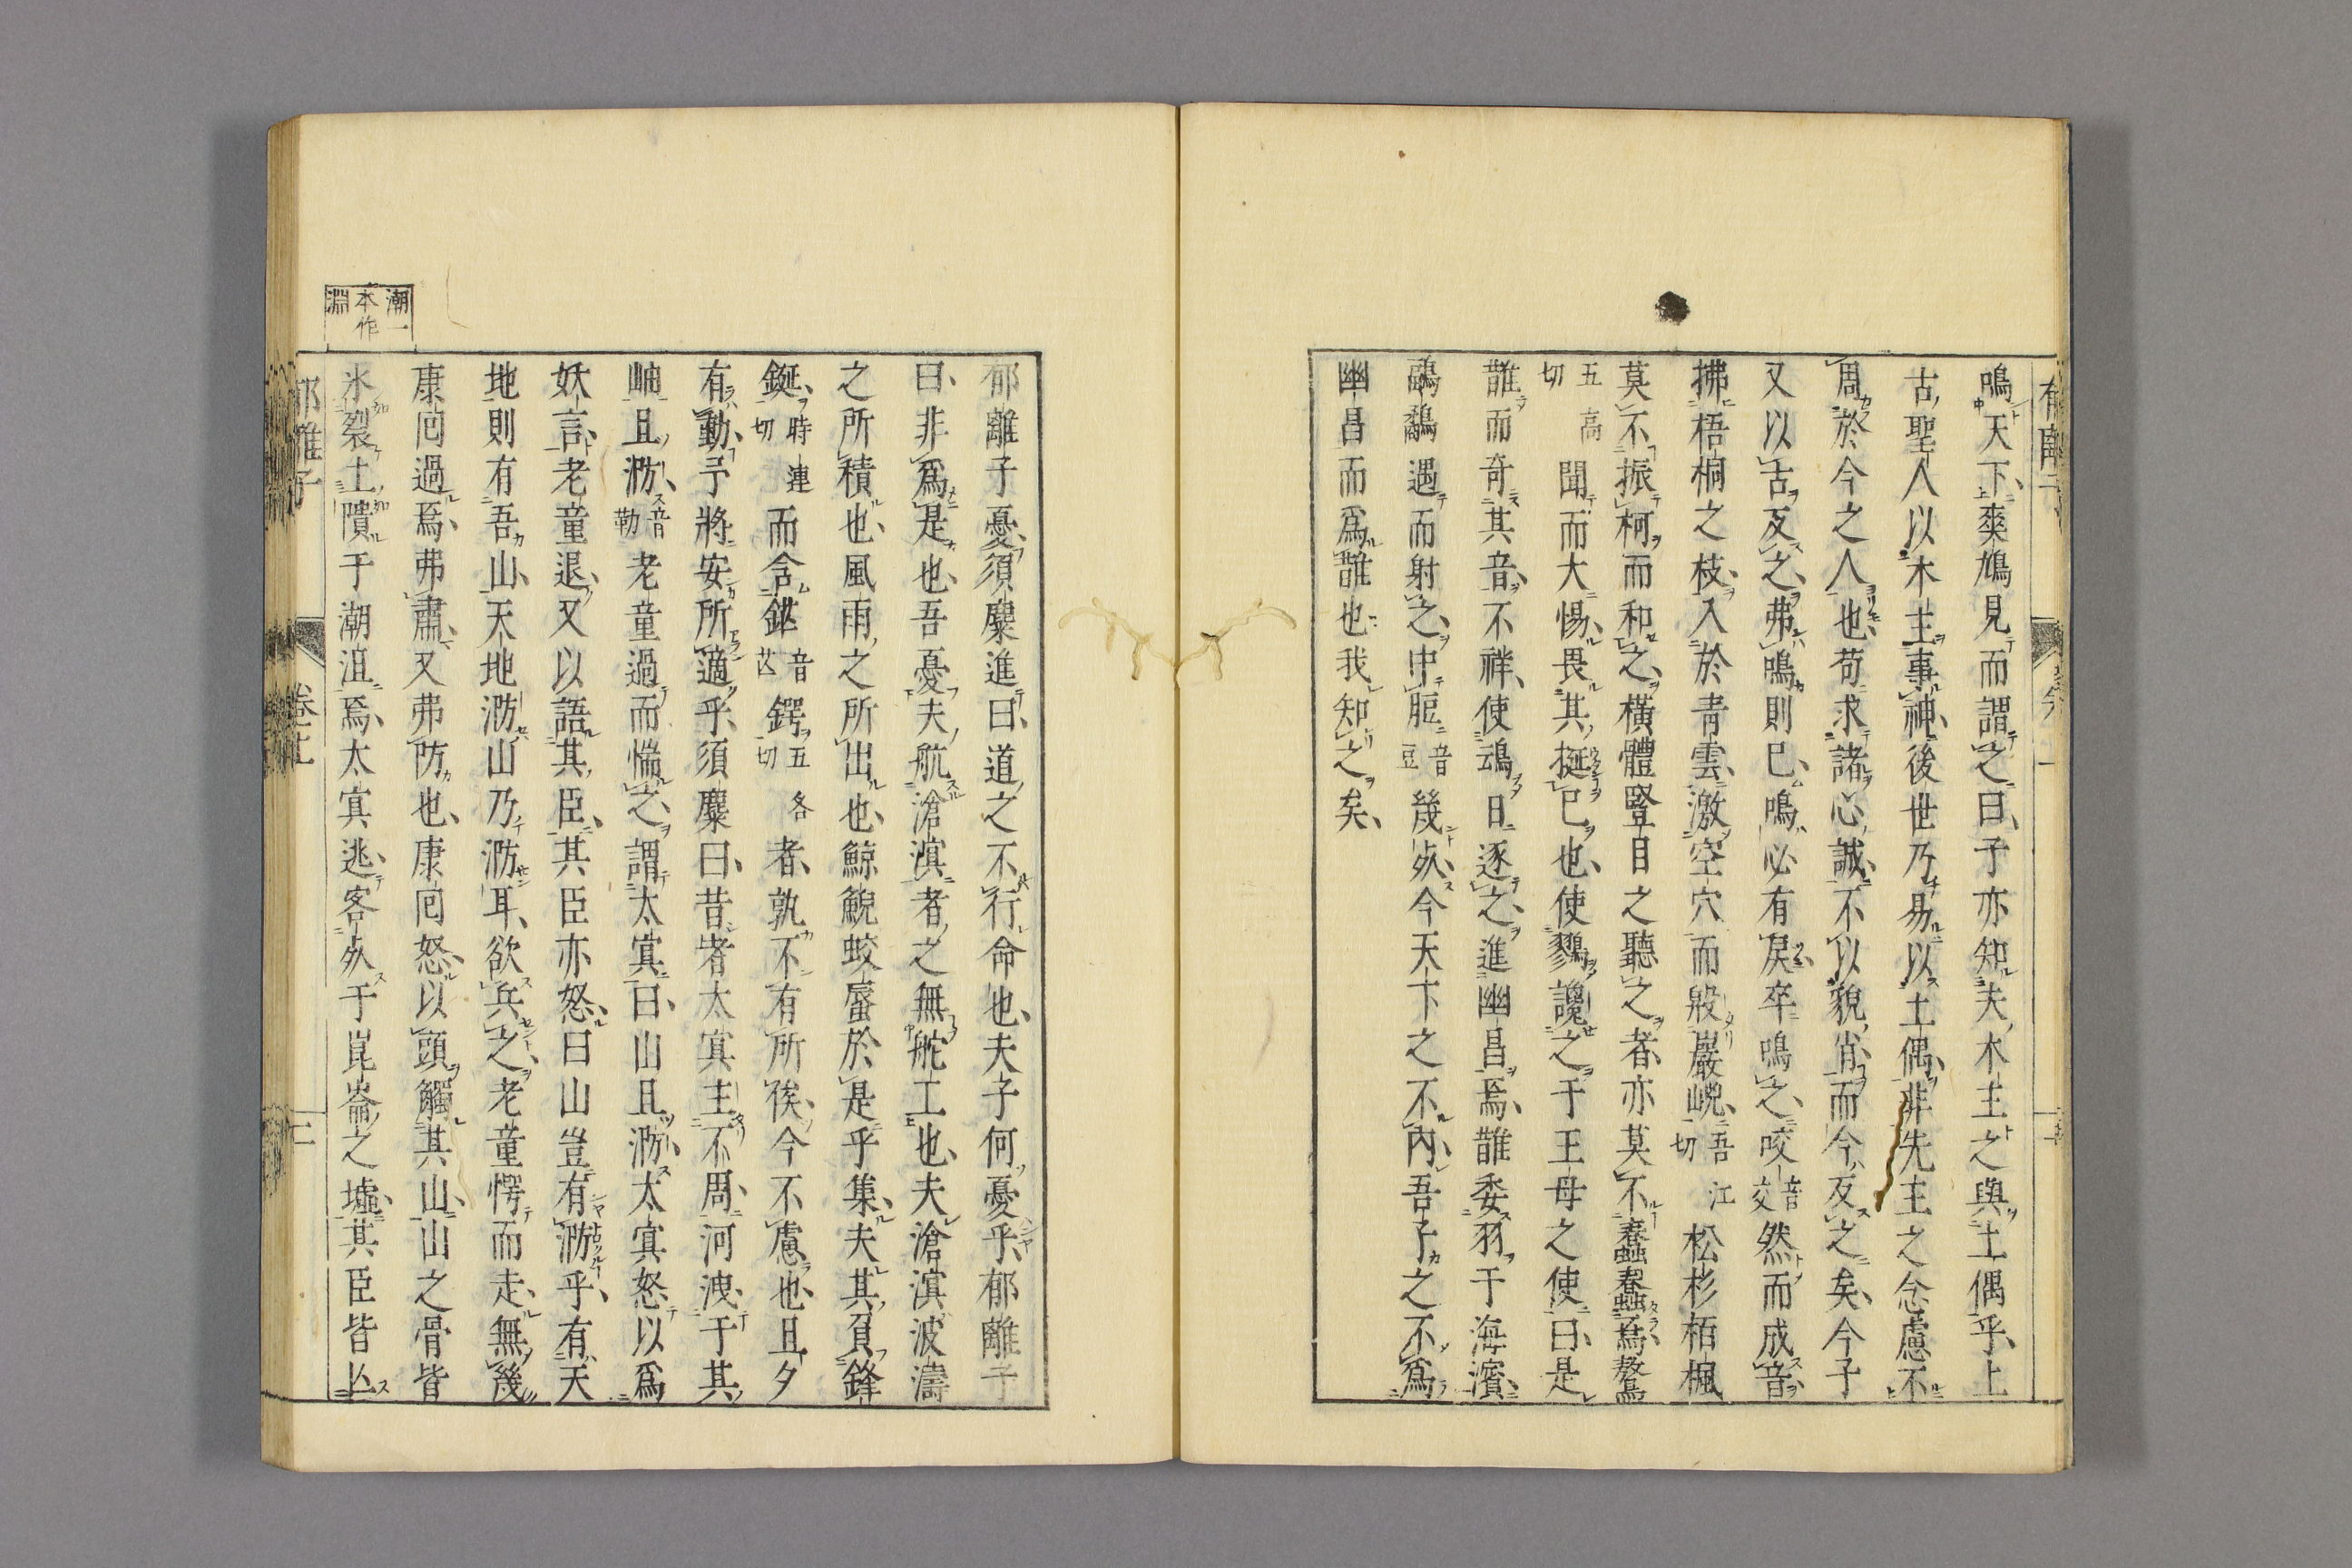 鳴天下爽鳩見而謂之曰子亦知夫木主之與土偶乎上
古聖人以木主事神後世乃易以土偶非先王之念慮不
周於今之人也苟求諸心誠不以貌肖而今反之矣今子
又以古反之弗鳴則已鳴必有戾卒鳴之咬音交然而成音
拂梧桐之枝入於青雲激空穴而殷巖㟅吾江切松杉栢楓
莫不振柯而和之橫體豎目之聽之者亦莫不蠢蠢焉鷔
五高切聞而大惕畏其挻已也使鷚讒之于王母之使曰是
䧿而奇其音不祥使䳃日逐之進幽昌焉䧿委羽于海濱
鸀鷸遇而射之中脰音豆幾死今天下之不內吾子之不爲
幽昌而爲䧿也我知之矣
郁離子憂須麋進曰道之不行命也夫子何憂乎郁離子
曰非爲是也吾憂夫航滄溟者之無舵工也夫滄溟波濤
之所積也風雨之所出也鯨鯢蛟蜃於是乎集夫其負鋒
鋋時連切而含鋩音芒鍔五各切者孰不有所俟今不慮也且夕
有動予將安所適乎須麋曰昔者太冥主不周河洩于其
岫且泐音勒老童過而惴之謂太冥曰山且泐太冥怒以爲
妖言老童退又以語其臣其臣亦怒曰山豈有泐乎有天
地則有吾山天地泐山乃泐耳欲兵之老童愕而走無幾
康回過焉弗肅又弗防也康回怒以頭觸其山山之骨皆
氷裂土隤于潮沮焉太冥逃客死于崑崙之墟其臣皆亾
潮一
本作
淵
郁離子
卷之上
三